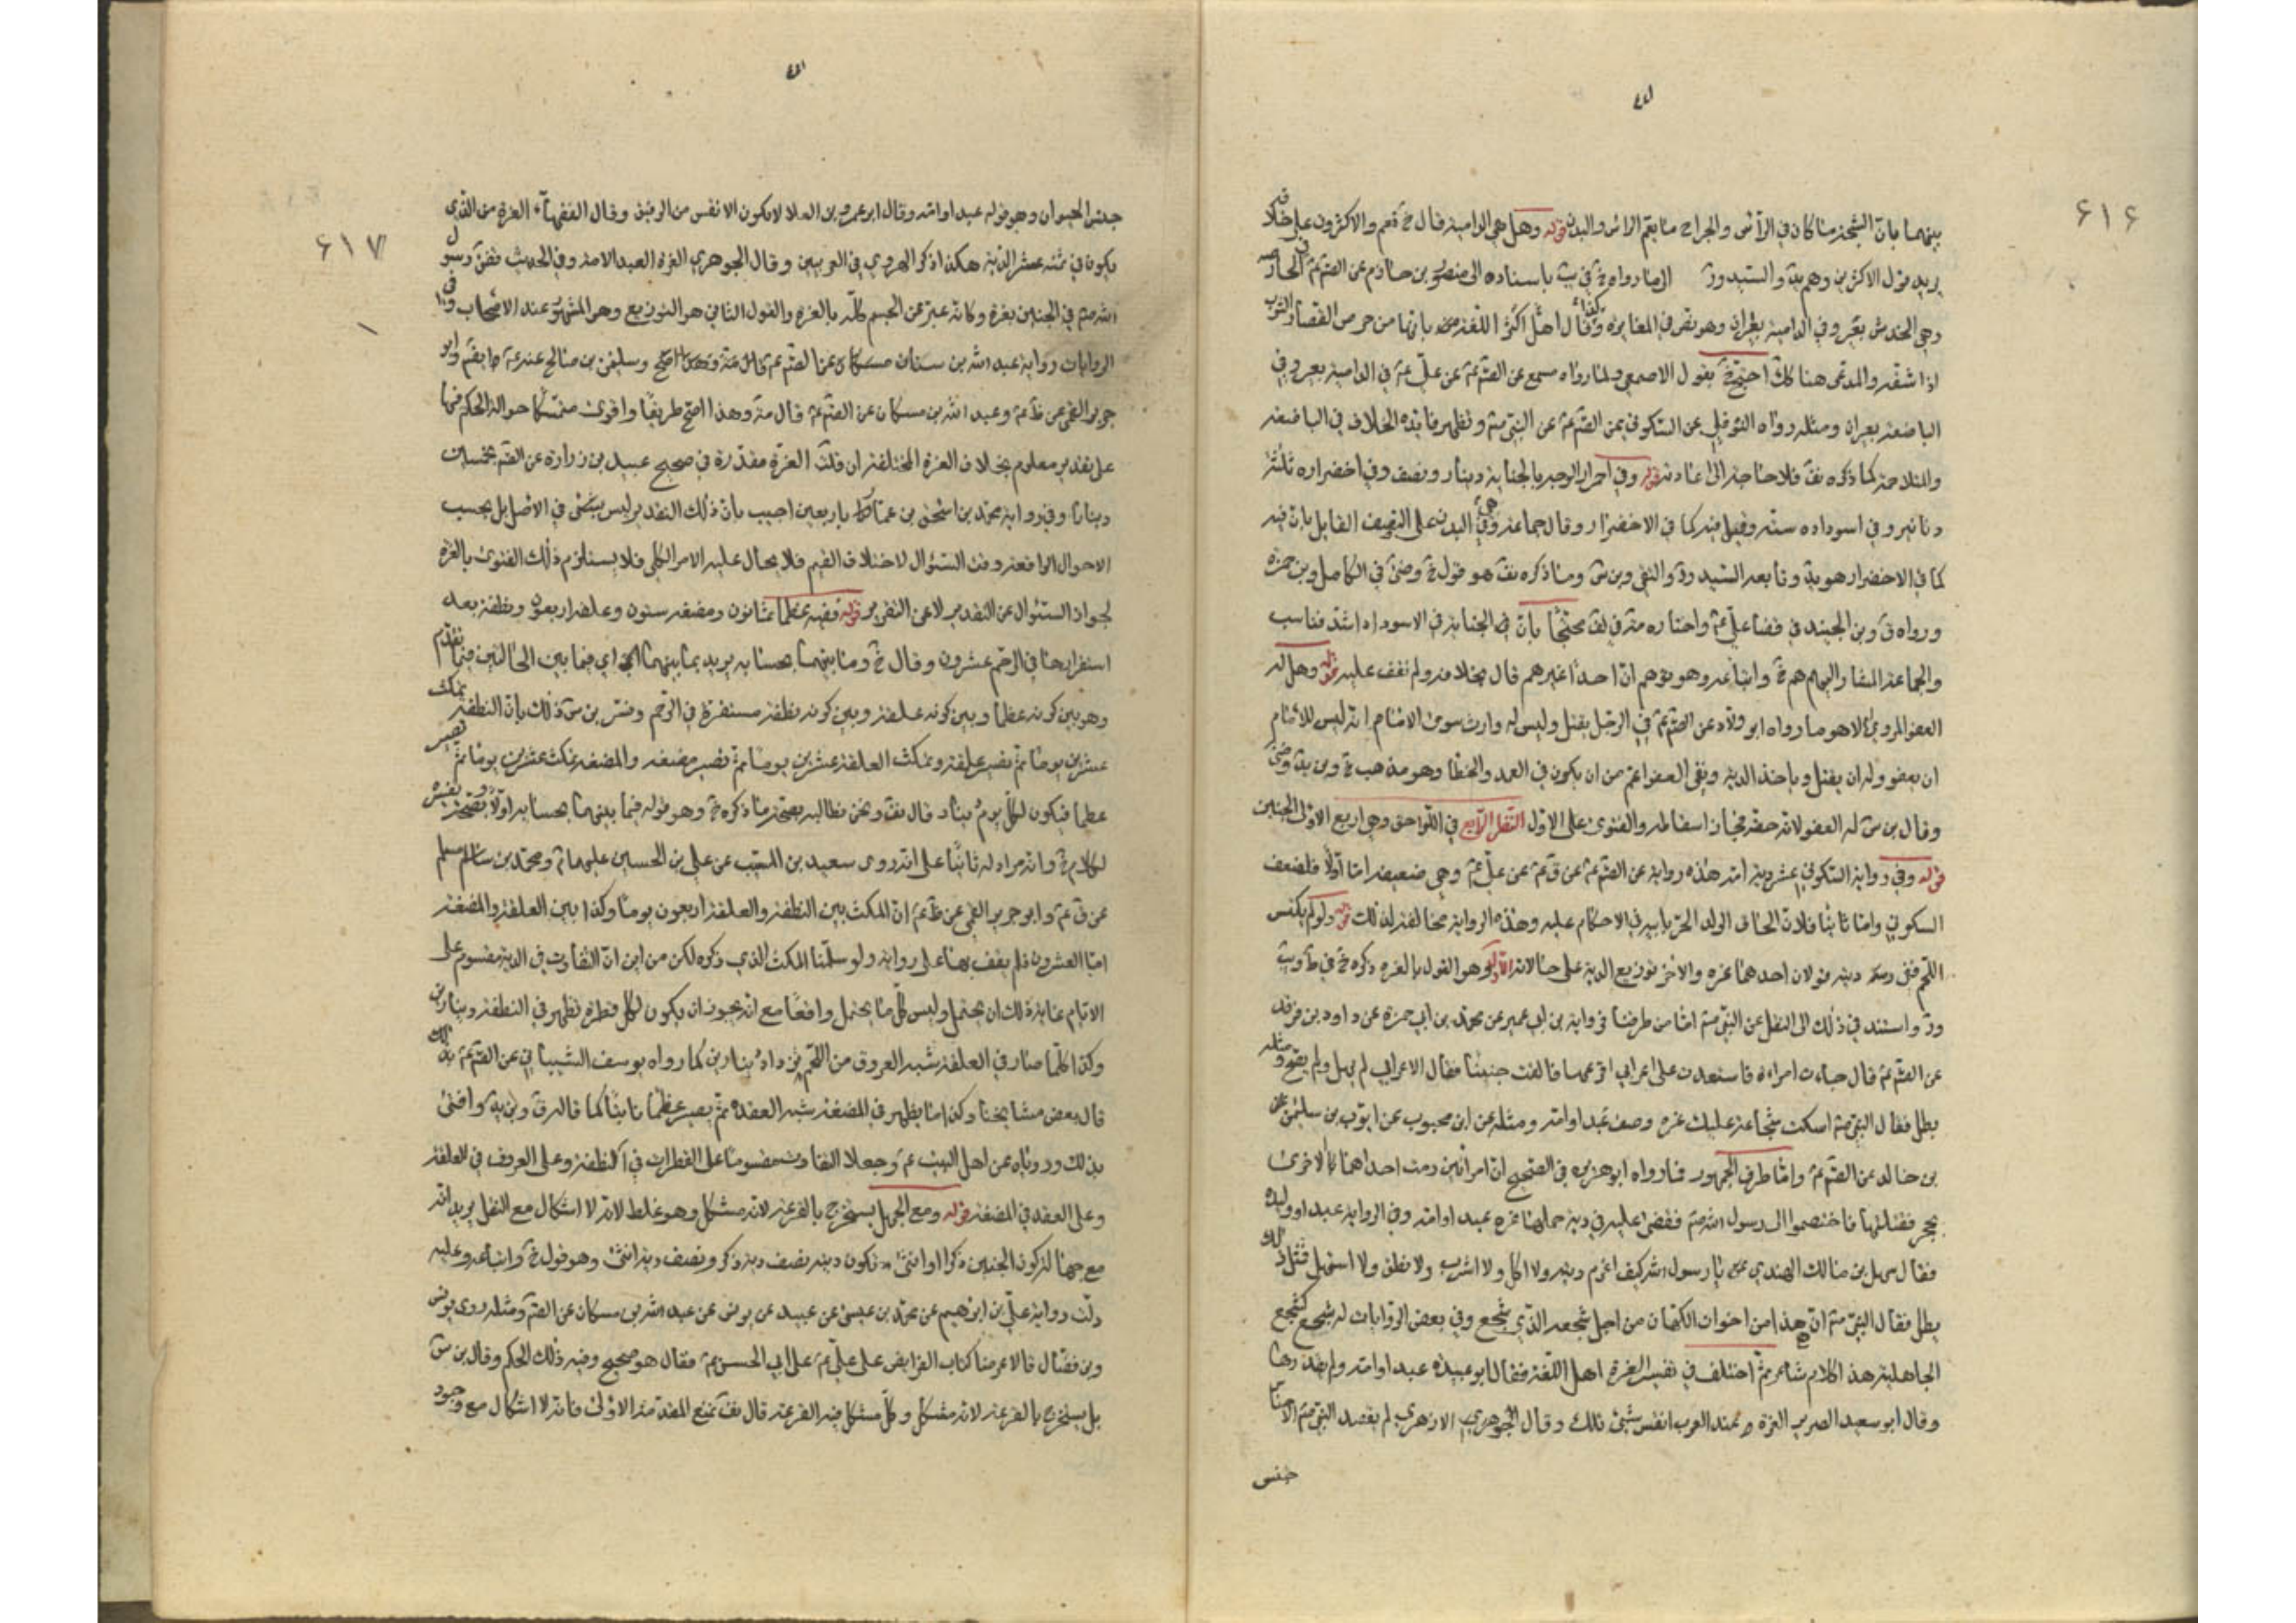 ٦١٦
بينهما بان الشجة ما كان في الرأس والجراح ما يعم الرأس والبدن قوله وهل هي الدامية قال خ نعم والاكثرون على خلافه
يريد بقول الاكثرين وهم يد والسيد ور لما رواه خ في يب باسناده الى منصور بن حازم عن الصم عم في الحارصة
وهي الخدش بعير وفي الدامية بعيران وهو نص في المغايرة وقال اكثر اهل اللغة بانها من حرص القصار الثوب
اذا شقه والمدعى هنا كك احتج خ بقول الاصمعي ولما رواه مسمع عن الصم عم عن علي عم في الدامية بعير وفي
الباضعة بعيران ومثله رواه النوفلي عن السكوني عن الصم عم عن النبي صم وتظهر فايدة الخلاف في الباضعة
والمتلاحمة كما ذكره نف فلا حاجة الى اعادته قوله وفي احمرار الوجه بالجناية دينار ونصف وفي اخضراره ثلثة
دنانير وفي اسوداده ستة وقيل فيه كما في الاخضرار وقال جماعة وهي في البدن على النصف القايل بان فيه
كما في الاخضرار هو يد وتابعه السيد ور والتقي وبن س وما ذكره نف هو قول خ وضى في الكامل وبن حمزة
ورواه ق وبن الجنيد في قضا علي عم واختاره مة في لف محتجا بان الجناية في الاسوداد اشد فناسب
والجماعة المشار اليهم هم خ واتباعه وهو يوهم ان احدا غيرهم قال بخلافه ولم نقف عليه قوله وهل له
العفو المروي لا هو ما رواه ابو ولاد عن الصم عم في الرجل يقتل وليس له وارث سوى الامام انه ليس للامام
ان يعفو وله ان يقتل وياخذ الدية ونفى العفو اعم من ان يكون في العمد والخطا وهو مذهب خ وبن يد وضى
وقال بن س له العفو لانه حقه فجاز اسقاطه والفتوى على الاول النظر الرابع في اللواحق وهي اربع الاولى الجنين
قوله وفي رواية السكوني عشر دية امه هذه رواية عن الصم عم عن ق عم عن علي عم وهي ضعيفة اما اولا فلضعف
السكوني واما ثانيا فلان الحاق الولد الحر بابيه في الاحكام عليه وهذه الرواية مخالفة لذلك قوله ولو لم يكتس
اللحم ففي ديته قولان احدهما غرة والاخر توزيع الدية على حالاته الاول هو القول بالغرة ذكره خ في ط وب
ور واستند في ذلك الى النقل عن النبي صم اما من طرفنا فرواية بن ابي عمير عن محمد بن ابي حمزة عن داود بن فرقد
عن الصم عم قال جاءت امراءة فاستعدت على اعرابي افزعها فالقت جنينا فقال الاعرابي لم يهل ولم يصح ومثله
يطل فقال النبي صم اسكت سجاعة عليك غرة وصيف عبد او امة ومثله عن ابن محبوب عن ايوب بن سليمن عن
بن خالد عن الصم عم واما طرف الجمهور فما رواه ابو هريرة في الصحيح ان امراتين رمت احداهما الاخرى
بحجر فقتلتها فاختصموا الى رسول الله صم فقضى عليه في دية حملها غرة عبد او امة وفي الرواية عبد او وليدة
فقال سهل بن مالك الهندي يا رسول الله كيف اغرم دية ولا اكل ولا اشرب ولا نطق ولا استهل فمثل ذلك
يطل فقال النبي صم ان هذا من اخوان الكهان من اجل سجعه الذي سجع وفي بعض الروايات له سجع كسجع
الجاهلية هذا كلام شاعر ثم اختلف في تفسير الغرة اهل اللغة فقال ابو عبيدة عبد او امة
وقال ابو سعيد الضرير الغرة عند العرب انفس شيئ تملك وقال الازهري لم يقصد النبي صم الا جنسا
جنس
٦١٧
جنس الحيوان وهو قوله عبد او امة وقال ابو عمرو بن العلا لا يكون الا نفس من الرقيق وقال الفقهاء الغرة من الذي
يكون في ثمنه عشر الدية هكذا ذكر الهروي في الغريبين وقال الجوهري الغرة العبد الامة وفي الحديث قضى رسول
الله صم في الجنين بغرة وكانه عبر عن الجسم كله بالغرة والقول الثاني هو التوزيع وهو المشهور عند الاصحاب وفي
الروايات رواية عبد الله بن سنان عن الصم عم وسليمن بن صالح عنه عم ايضا وابو
جرير القمي عن ظم عم وعبد الله بن مسكان عن الصم عم قال مة وهذا اصح طريقا واقوى متمسكا حوالة الحكم فيها
على تقدير معلوم بخلاف الغرة المختلفة ان قلت الغرة مقدرة في صحيح عبيد بن زرارة عن الصم بخمسين
دينارا وفي رواية محمد بن اسحق بن عمار باربعين اجيب بان ذلك التقدير ليس بمتصل في الاصل بل بحسب
الاحوال الواقعة وقت السؤال لاختلاف القيم فلا يحال عليه الامر الكلي فلا يستلزم ذلك الفتوى بالغرة
لجواز السئوال عن التقدير لا عن التقرير قوله ففيه عظما ثمانون ومضغة ستون وعلقة اربعون ونطفة بعد
استقرارها في الرحم عشرون وقال خ وما بينهما بحسابه يريد بما بينهما اي فيما بين الحالتين فيما تقدم
وهو بين كونه عظما وبين كونه علقة وبين كونه نطفة مستقرة في الرحم وفسر بن س ذلك بان النطفة تمكث
عشرين يوما ثم تصير علقة وتمكث العلقة عشرين يوما ثم تصير مضغة والمضغة تمكث عشرين يوما ثم تصير
عظما فيكون لكل يوم دينار قال نف ونحن نطالبه بصحة ما ذكره خ وهو قوله فيما بينهما بحسابه اولا وبصحة تفسيره
لكلام خ وانه مراد له ثانيا على انه روى سعيد بن المسيب عن علي بن الحسين عليهما م ومحمد بن مسلم
عن ق عم وابو جرير القمي عن ظم عم ان المكث بين النطفة والعلقة اربعون يوما وكذا بين العلقة والمضغة
اما العشرون فلم يقف بها على رواية ولو سلمنا المكث الذي ذكره لكن من اين ان التفاوت في الدية مقسوم على
الايام غاية ذلك ان يحتمل وليس كل ما يحتمل واقعا مع انه يجوز ان يكون لكل قطرة تظهر في النطفة ديناران
وكذا كلما صار في العلقة شبه العروق من اللحم يزداد دينارين كما رواه يوسف الشيباني عن الصم عم بذلك
قال بعض مشايخنا وكذا ما يظهر في المضغة شبه العقدة ثم يصير عظما نابتا كما قاله ق وبن يد وافتى
بذلك ورواه عن اهل البيت عم وجعلا التفاوت مقسوما على القطرات في النطفة وعلى العروق في العلقة
وعلى العقد في المضغة قوله ومع الجهل يستخرج بالقرعة لانه مشكل وهو غلط لانه لا اشكال مع النقل يريد انه
مع جهالة كون الجنين ذكرا او انثى تكون ديته نصف دية ذكر ونصف دية انثى وهو قول خ واتباعه وعليه
دلت رواية علي بن ابرهيم عن محمد بن عيسى عن عبيد عن يونس عن عبد الله بن مسكان عن الصم ومثله روى يونس
وبن فضال قالا عرضنا كتاب الفرايض على علي عم على ابي الحسن عم فقال هو صحيح وفيه ذلك الحكم وقال بن س
بل يستخرج بالقرعة لانه مشكل وكل مشكل فيه القرعة قال نف نمنع المقدمة الاولى فانه لا اشكال مع وجود